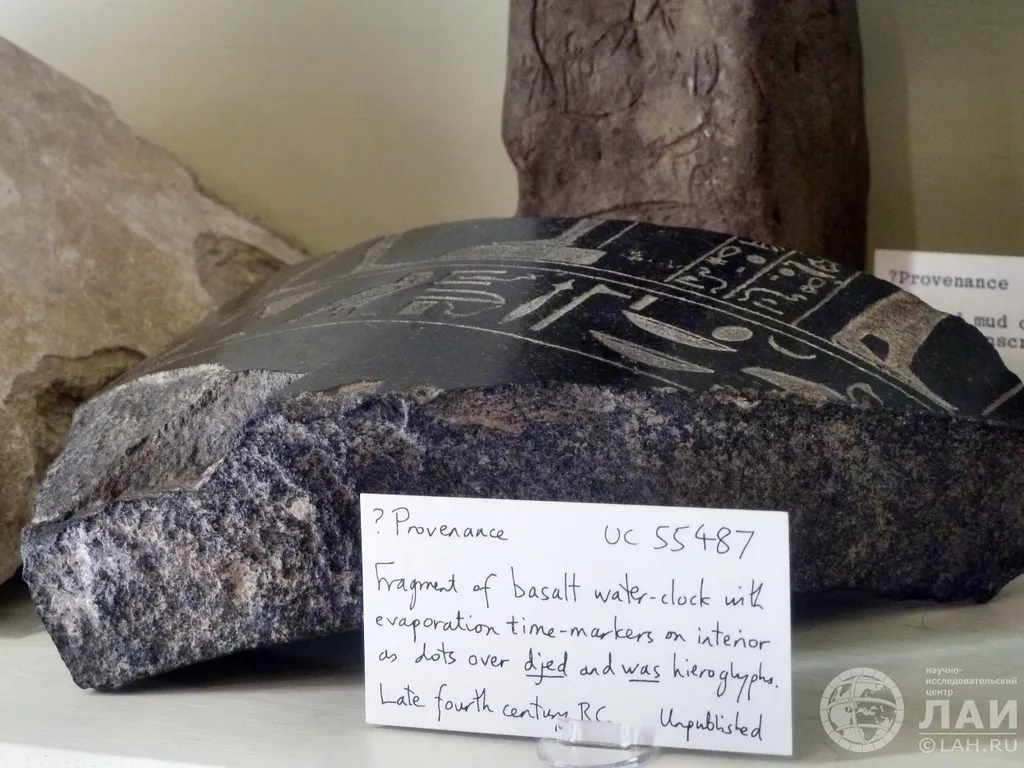 ? Provenance UC 55487
Fragment of basalt water-clock with
evaporation time-markers on interior
as dots over djed and was hieroglyphs.
Late fourth century BC Unpublished
?Provenance
mud
научно-
исследовательский
центр
ЛАИ
© LAH.RU